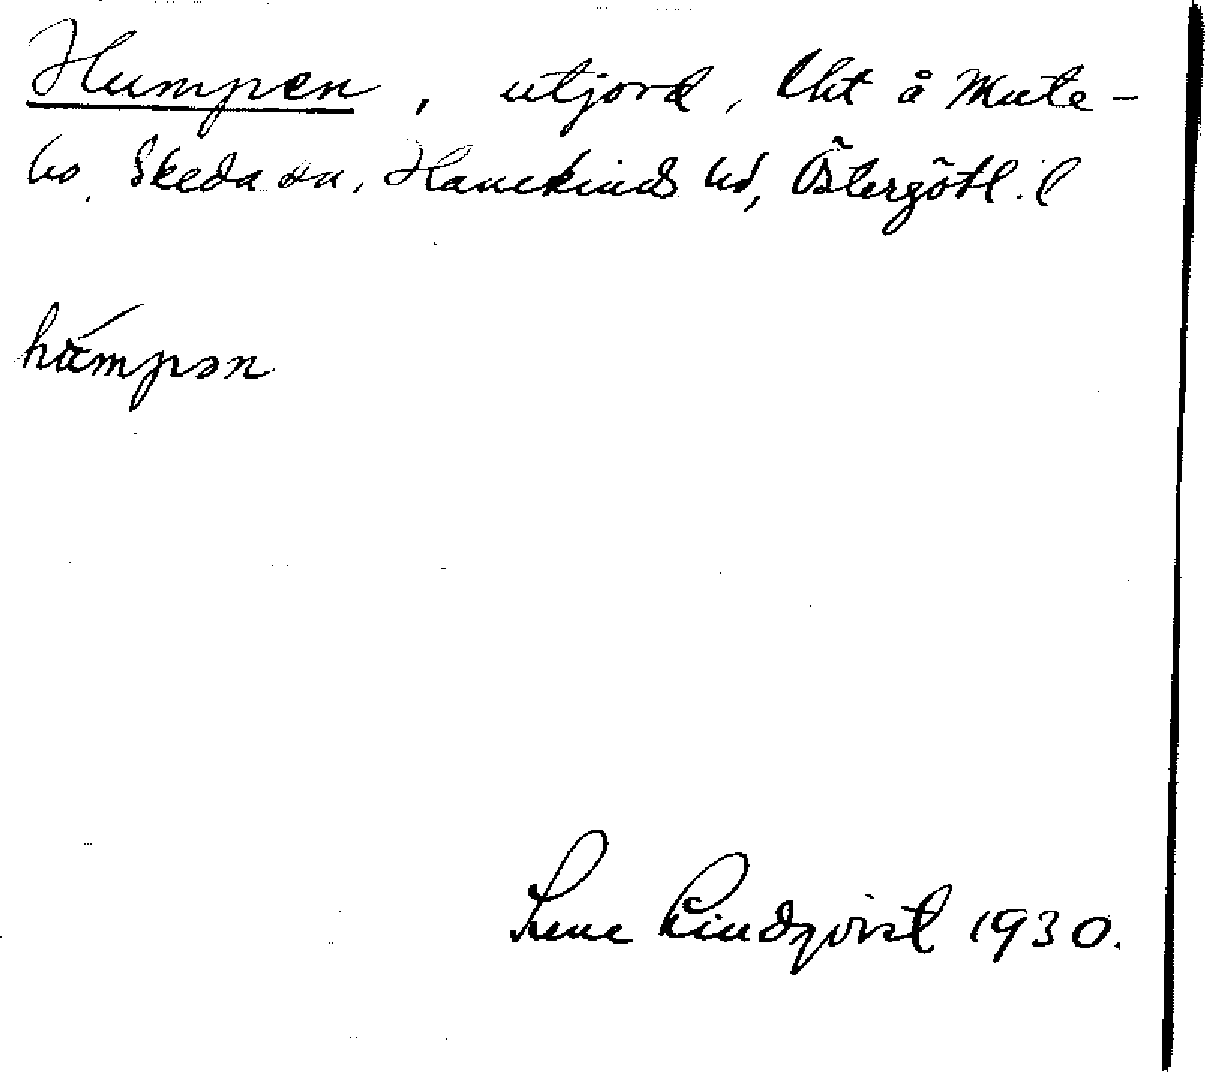 Humpen, utjord, Cht å Mute-
bo, Skeda sn, Hanekinds hd, Östergötl. l
hu̇mpən
Sune Lindqvist 1930.